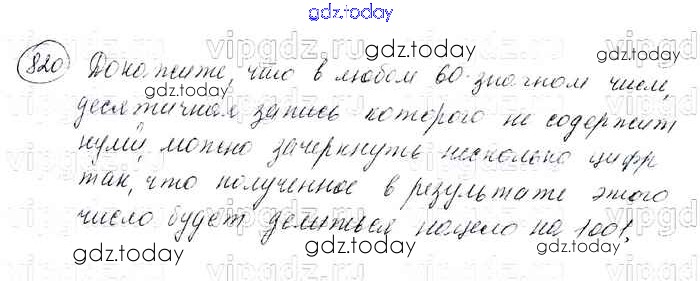 gdz.today
vipgdz.ru gdz.today vipgdz.ru
820 Докажите, что в любом 60-значном числе,
gdz.today gdz.today
десятичная запись которого не содержит
нулей, можно зачеркнуть несколько цифр
gdz.today gdz.today
так, что полученное в результате этого
число будет делиться нацело на 1001.
gdz.today gdz.today